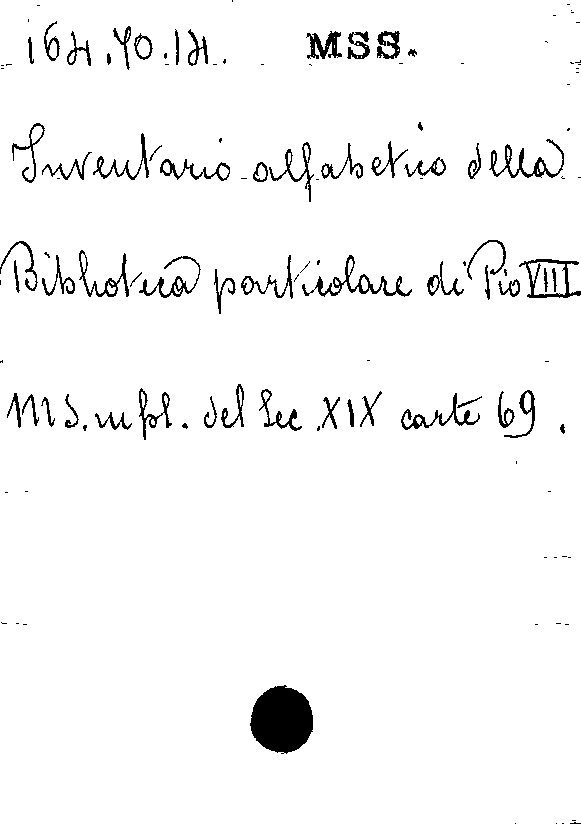 164.40.14. MSS.
Inventario alfabetico della
Biblioteca particolare di Pio VIII
MS. in fol. del Sec. XIX carte 69.